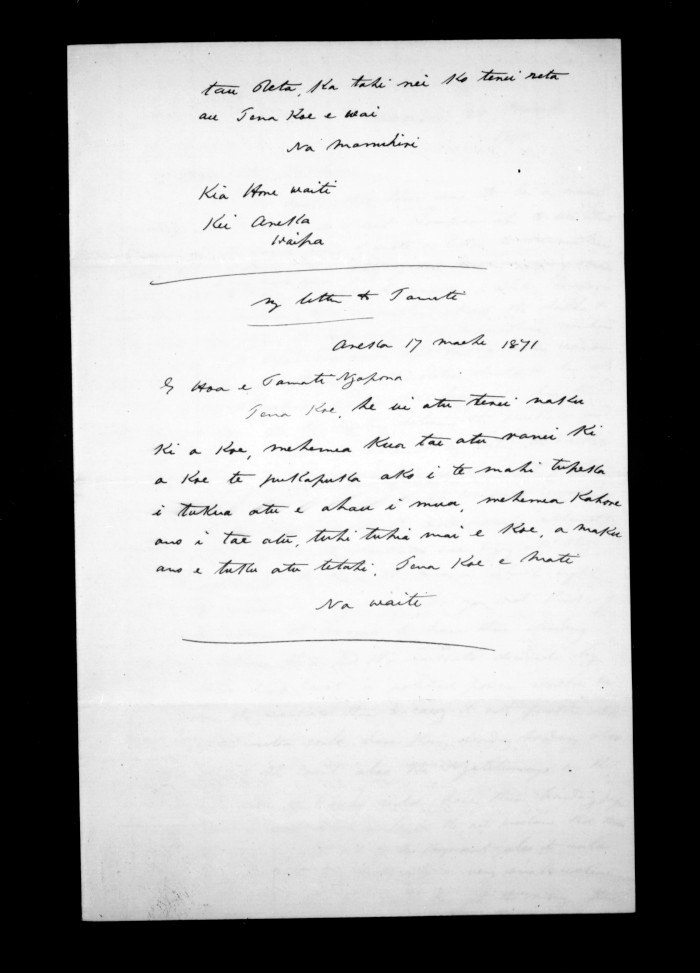 tau Reta, Ka tahi nei ko tenei reta
au Tena Koe e wai
Na Manuhiri
Kia Hone waiti
Kei Aneka
Waipa
my letter to Tamati
Aneka 17 maehe 1871
E Hoa e Tamati Ngapora
Tena Koe, he ui atu tenei naku
Ki a Koe, mehemea Kua tae atu ranei Ki
a Koe te pukapuka ako i te mahi tupeka
i tukua atu e ahau i mua, mehemea Kahore
ano i tae atu, tuhi tuhia mai e Koe, a maku
ano e tuku atu tetahi. Tena Koe e Mati
Na waiti